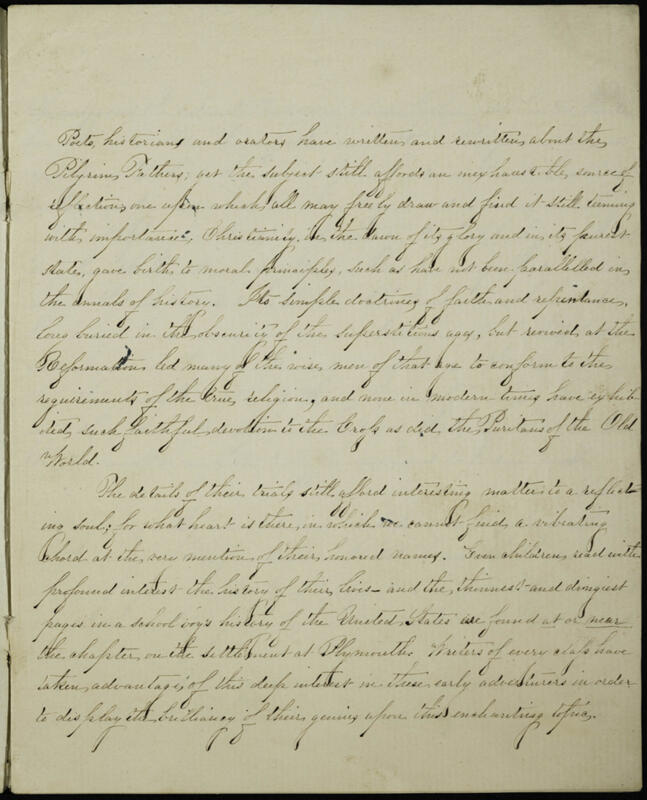 Poets, historians and orators have written and rewritten about the
Pilgrim Fathers; yet the subject still affords an inexhaustible source of
reflection, one upon which all may freely draw and find it still teeming
with importance. Christianity in the dawn of its glory and in its purest
state, gave birth to moral principles, such as have not been parallelled in
the annals of history. Its simple doctrines of faith and repentance,
long buried in the obscurity of the superstitious ages, but revived at the
Reformation led many of the wise men of that age to conform to the
requirements of the true religion, and none in modern times have exhib-
ited such faithful devotion to the Cross as did the Puritans of the Old
World.
The details of their trials still afford interesting matter to a reflect-
ing soul; for what heart is there in which we cannot find a vibrating
chord at the very mention of their honored names. Even children read with
profound interest the history of their lives - and the thinnest and dingiest
pages in a school boy's history of the United States are found at or near
the chapter on the settlement at Plymouth. Writers of every class have
taken advantage of this deep interest in these early adventurers in order
to display the brilliancy of their genius upon this enchanting topic.